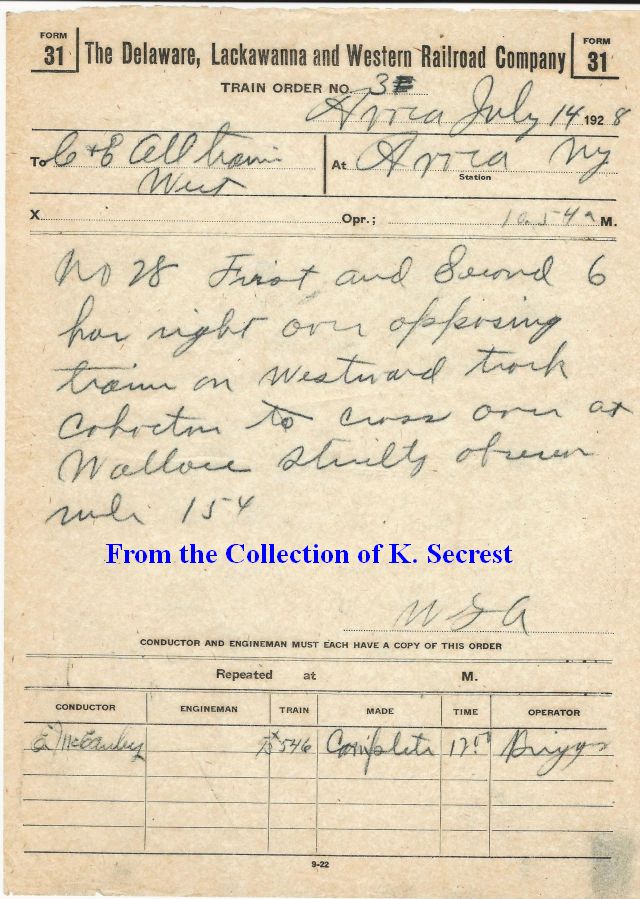 FORM 31 The Delaware, Lackawanna and Western Railroad Company FORM 31
TRAIN ORDER NO. 3
Avoca July 14 1928
To C + E All trains At Avoca NY
West Station
X Opr.; 10.54 a M.
No 28 First and Second 6
has right over opposing
trains on westward track
Cohocton to cross over at
Wallace strictly observe
rule 154
W G A
CONDUCTOR AND ENGINEMAN MUST EACH HAVE A COPY OF THIS ORDER
Repeated at M.
CONDUCTOR ENGINEMAN TRAIN MADE TIME OPERATOR
546 Complete Briggs
9-22
From the Collection of K. Secrest